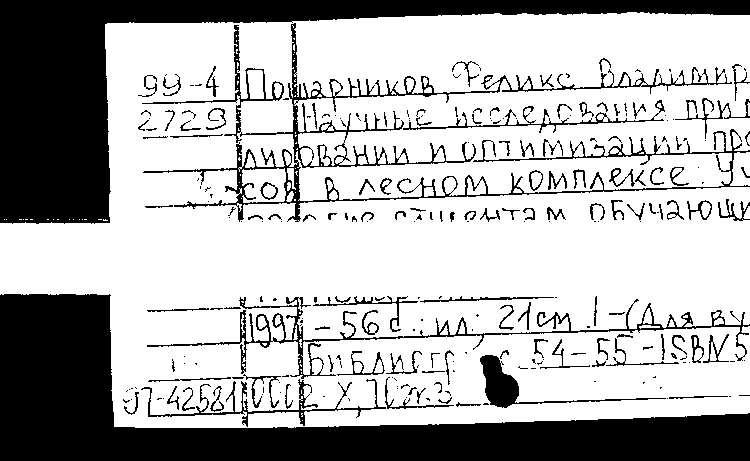 99-4 Пошарников, Феликс Владимир
2729 Научные исследования при
лировании и оптимизации про
сов в лесном комплексе Уч
студентам обучающи
1997 – 56 с. : ил ; 21 см. – (Для ву
Библиогр с 54–55 – ISBN 5
97-42581